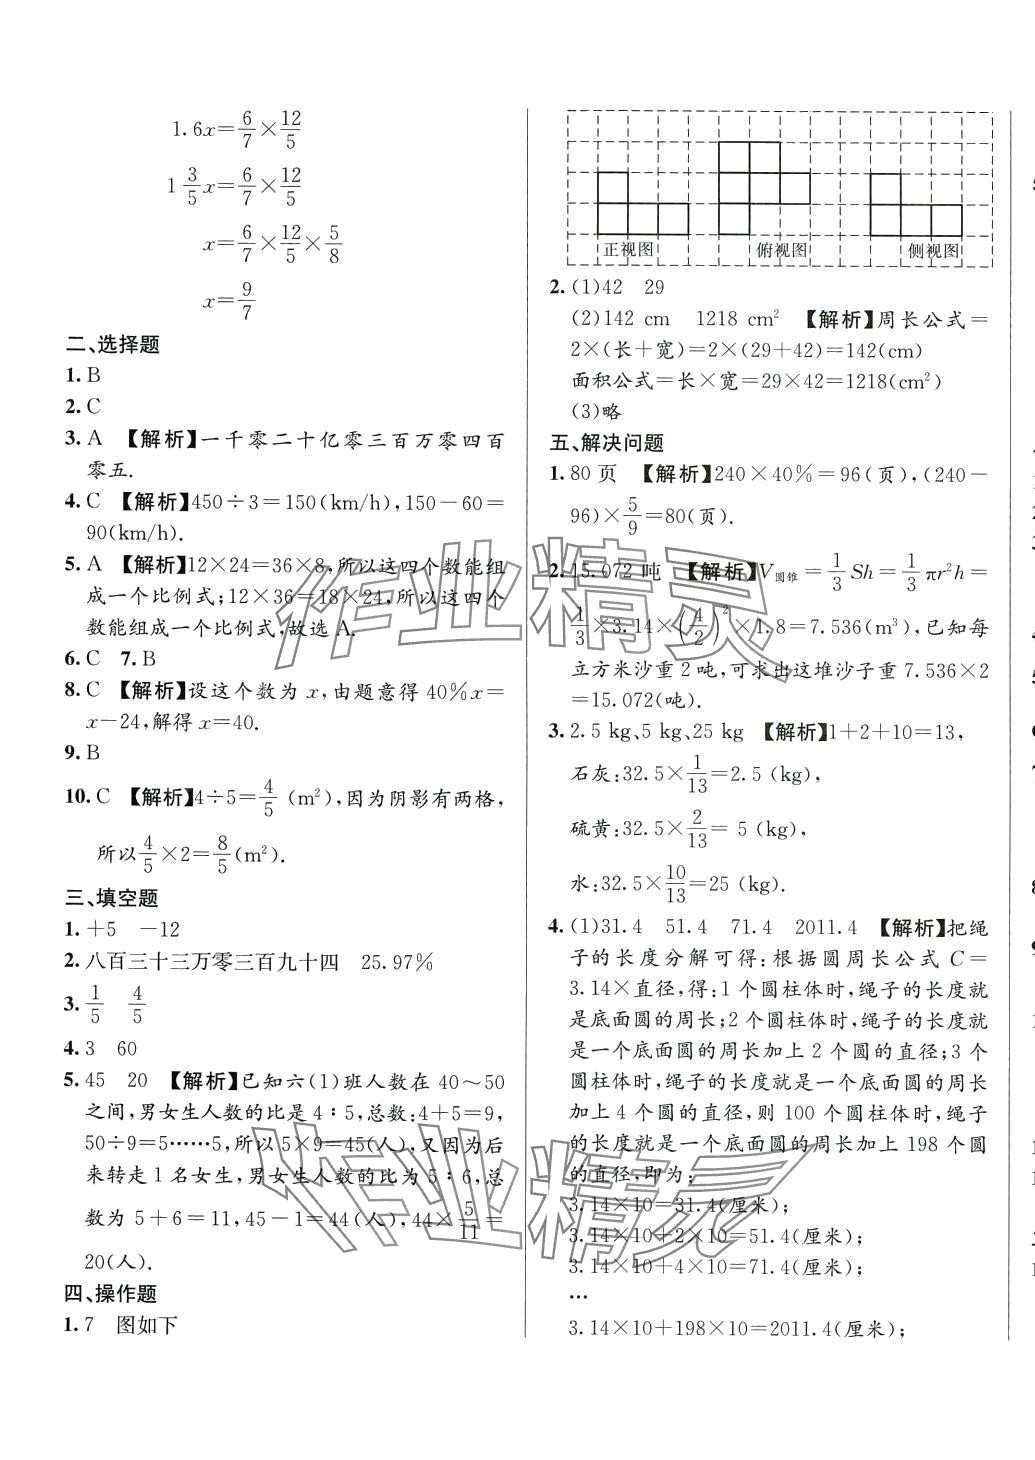 1.6x=6/7×12/5
1 3/5 x=6/7×12/5
x=6/7×12/5×5/8
x=9/7
二、选择题
1. B
2. C
3. A 【解析】一千零二十亿零三百万零四百
零五.
4. C 【解析】450÷3=150(km/h),150-60=
90(km/h).
5. A 【解析】12×24=36×8,所以这四个数能组
成一个比例式;12×36=18×24,所以这四个
数能组成一个比例式,故选A.
6. C 7. B
8. C 【解析】设这个数为 x,由题意得 40%x=
x-24,解得 x=40.
9. B
10. C 【解析】4÷5=4/5 (m²),因为阴影有两格,
所以4/5×2=8/5(m²).
三、填空题
1. +5 -12
2. 八百三十三万零三百九十四 25.97%
3. 1/5 4/5
4. 3 60
5. 45 20 【解析】已知六(1)班人数在 40～50
之间,男女生人数的比是 4∶5,总数:4+5=9,
50÷9=5……5,所以 5×9=45(人),又因为后
来转走 1 名女生,男女生人数的比为 5∶6,总
数为 5+6=11,45-1=44(人),44×5/11=
20(人).
四、操作题
1. 7 图如下
正视图 俯视图 侧视图
2. (1)42 29
(2)142 cm 1218 cm² 【解析】周长公式=
2×(长+宽)=2×(29+42)=142(cm)
面积公式=长×宽=29×42=1218(cm²)
(3)略
五、解决问题
1. 80 页 【解析】240×40%=96(页),(240-
96)×5/9=80(页).
2. 15.072 吨 【解析】V圆锥=1/3Sh=1/3πr²h=
1/3×3.14×(4/2)²×1.8=7.536(m³),已知每
立方米沙重 2 吨,可求出这堆沙子重 7.536×2
=15.072(吨).
3. 2.5 kg、5 kg、25 kg 【解析】1+2+10=13,
石灰:32.5×1/13=2.5 (kg),
硫黄:32.5×2/13= 5 (kg),
水:32.5×10/13=25 (kg).
4. (1)31.4 51.4 71.4 2011.4 【解析】把绳
子的长度分解可得:根据圆周长公式 C=
3.14×直径,得:1 个圆柱体时,绳子的长度就
是底面圆的周长;2 个圆柱体时,绳子的长度就
是底面圆的周长加上 2 个圆的直径;3 个
圆柱体时,绳子的长度就是一个底面圆的周长
加上 4 个圆的直径,则 100 个圆柱体时,绳子
的长度就是一个底面圆的周长加上 198 个圆
的直径,即为:
3.14×10=31.4(厘米);
3.14×10+2×10=51.4(厘米);
3.14×10+4×10=71.4(厘米);
…
3.14×10+198×10=2011.4(厘米);
作业精灵
作业精灵